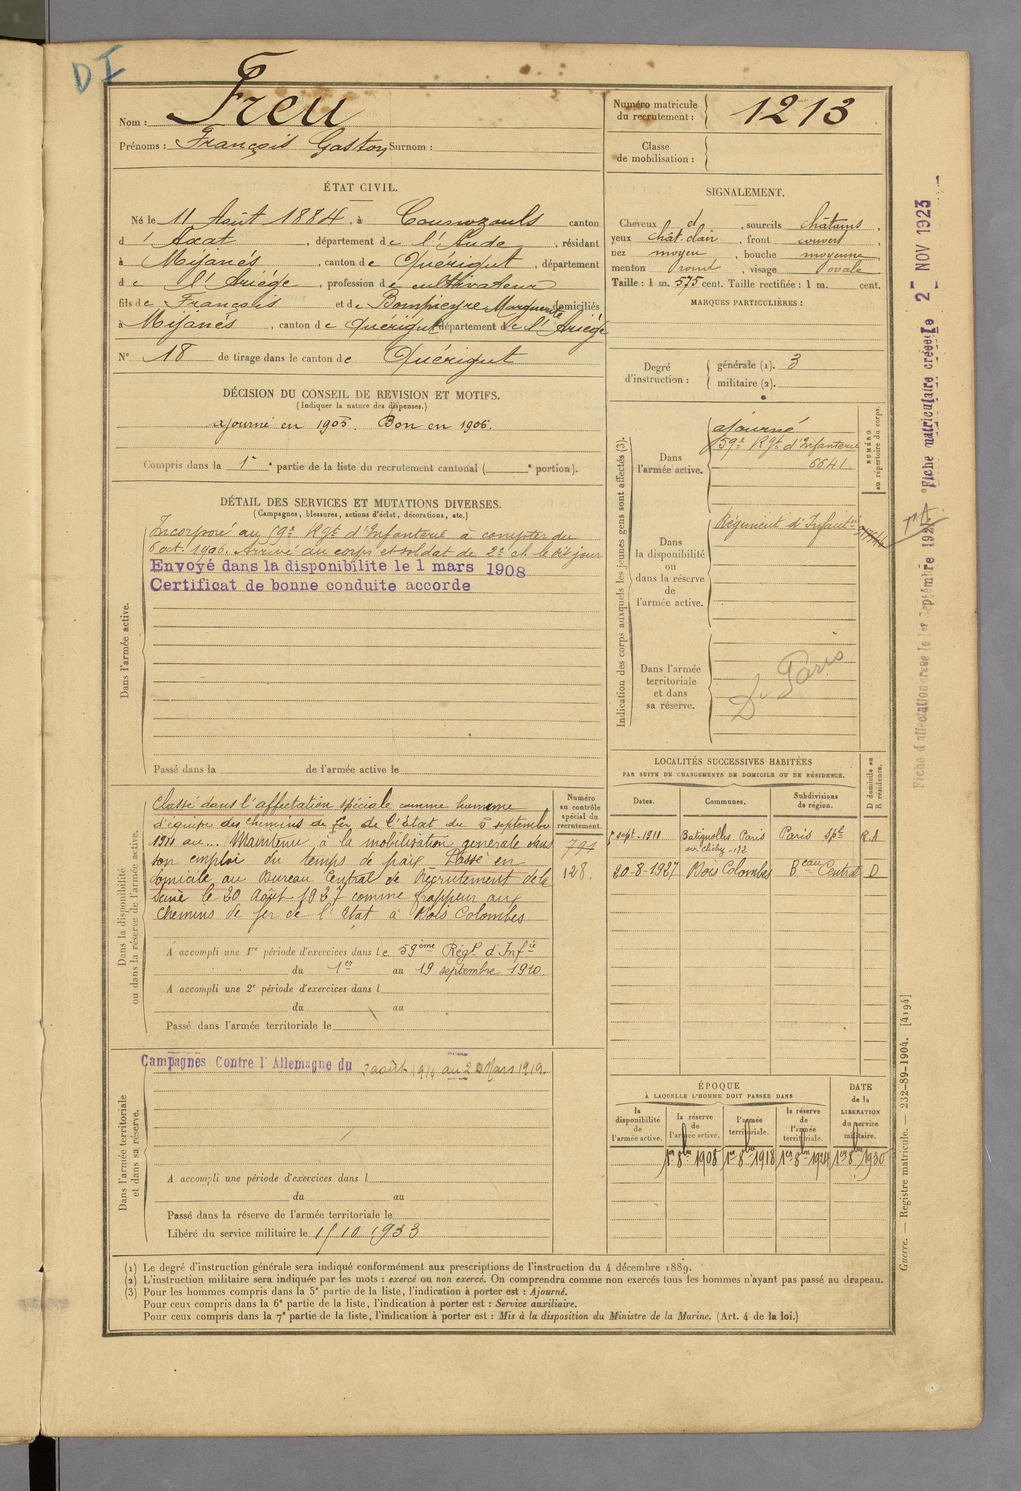 DI
Nom : Freu
Prénoms : François Gaston Surnom :
Numéro matricule du recrutement : 1213
Classe de mobilisation :
ÉTAT CIVIL.
Né le 11 Août 1884, à Counozouls canton
d'Axat, département de l'Aude, résidant
à Mijanés, canton de Quérigut, département
de l'Ariège, profession de cultivateur
fils de François et de Bompieyre Marguerite domiciliés
à Mijanés, canton de Quérigut département de l'Ariège
N° 18 de tirage dans le canton de Quérigut
SIGNALEMENT.
Cheveux d , sourcils châtains ,
yeux chât. clair , front couvert ,
nez moyen , bouche moyenne ,
menton rond , visage ovale
Taille : 1 m. 575 cent. Taille rectifiée : 1 m. cent.
MARQUES PARTICULIÈRES :
Degré d'instruction :
générale (1). 3
militaire (2).
DÉCISION DU CONSEIL DE REVISION ET MOTIFS.
(Indiquer la nature des dispenses.)
ajourné en 1905. Bon en 1906.
Compris dans la 1re partie de la liste du recrutement cantonal ( e portion).
DÉTAIL DES SERVICES ET MUTATIONS DIVERSES.
(Campagnes, blessures, actions d'éclat, décorations, etc.)
Dans l'armée active.
Incorporé au 59e Rgt d'Infanterie à compter du
6 oct. 1906. Arrivé au corps et soldat de 2e cl. le dit jour
Envoyé dans la disponibilite le 1 mars 1908
Certificat de bonne conduite accorde
Passé dans la de l'armée active le
Indication des corps auxquels les jeunes gens sont affectés (3).
NUMÉRO au répertoire du corps.
Dans l'armée active.
ajourné
59e Rgt d'Infanterie
6641
Dans la disponibilité ou dans la réserve de l'armée active.
Régiment d'Infanterie
Dans l'armée territoriale et dans sa réserve.
Paris
Dans la disponibilité ou dans la réserve de l'armée active.
Classé dans l'affectation spéciale comme homme
d'équipe des chemins de fer de l'Etat du 5 septembre
1911 au... Maintenu à la mobilisation generale dans
son emploi du temps de paix. Passé en
domicile au Bureau Central de Recrutement de la
Seine le 20 Août 1927 comme frappeur aux
chemins de fer de l'Etat à Bois Colombes
Numéro au contrôle spécial du recrutement.
794
128.
A accompli une 1re période d'exercices dans le 59ème Régt d'Infie
du 1er au 19 septembre 1910
A accompli une 2e période d'exercices dans l
du au
Passé dans l'armée territoriale le
LOCALITÉS SUCCESSIVES HABITÉES
PAR SUITE DE CHANGEMENTS DE DOMICILE OU DE RÉSIDENCE.
D domicile ou R résidence.
Dates. Communes. Subdivisions de région.
5 sept. 1911 Batignolles. Paris Paris R.A
20-8-1927 Bois Colombes Beau Central D
Dans l'armée territoriale et dans sa réserve.
Campagnes Contre l'Allemagne du 2 août 1914 au 20 Mars 1919.
A accompli une période d'exercices dans l
du au
Passé dans la réserve de l'armée territoriale le
Libéré du service militaire le 15 10 1933
ÉPOQUE
À LAQUELLE L'HOMME DOIT PASSER DANS
la disponibilité de l'armée active.
la réserve de l'armée active.
l'armée territoriale.
la réserve de l'armée territoriale.
DATE de la LIBÉRATION du service militaire.
1er 8bre 1908 1er 8bre 1918 1er 8bre 1924 1er 8bre 1930
(1) Le degré d'instruction générale sera indiqué conformément aux prescriptions de l'instruction du 4 décembre 1889.
(2) L'instruction militaire sera indiquée par les mots : exercé ou non exercé. On comprendra comme non exercés tous les hommes n'ayant pas passé au drapeau.
(3) Pour les hommes compris dans la 5e partie de la liste, l'indication à porter est : Ajourné.
Pour ceux compris dans la 6e partie de la liste, l'indication à porter est : Service auxiliaire.
Pour ceux compris dans la 7e partie de la liste, l'indication à porter est : Mis à la disposition du Ministre de la Marine. (Art. 4 de la loi.)
Guerre. — Registre matricule. — 232-89-1904. [4194]
Fiche matriculaire créée le 2 NOV 1923
Fiche d'affectation créée le 1er Septembre 192